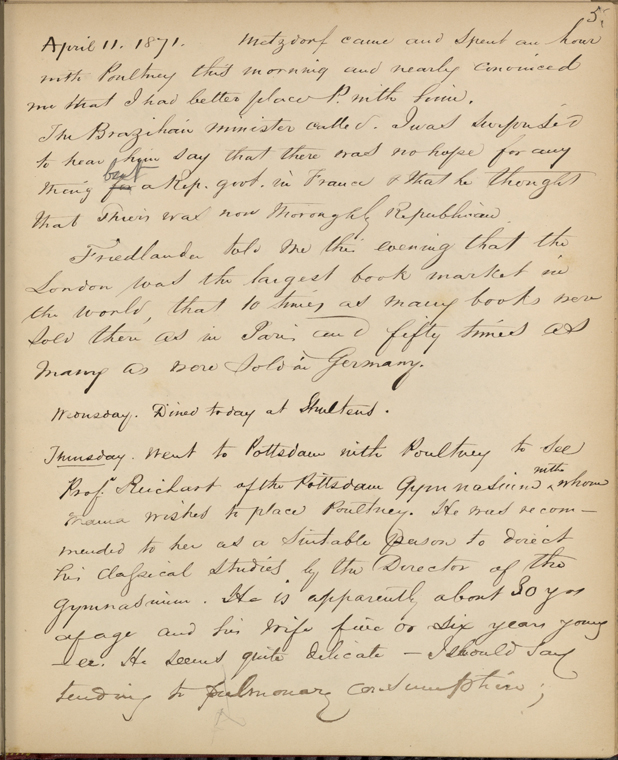 5.
April 11. 1871. Metzdorf came and spent an hour
with Poultney this morning and nearly convinced
me that I had better place P. with him.
The Brazilian minister called. I was surprised
to hear him say that there was no hope for any
thing but for a Rep. govt. in France & that he thought
that Thiers was now thoroughly Republican.
Friedlander told me this evening that the
London was the largest book market in
the world, that 10 times as many books were
sold there as in Paris and fifty times as
many as were sold in Germany.
Wednsday. Dined today at
Thursday. Went to Pottsdam with Poultney to see
Prof. Reichart of the Pottsdam Gymnasium with whom
mama wishes to place Poultney. He was recom-
mended to her as a suitable person to direct
his classical studies by the Director of the
Gymnasium. He is apparently about 30 yrs
of age and his wife five or six years young
-er. He seems quite delicate - I should say
tending to pulmonary consumption;